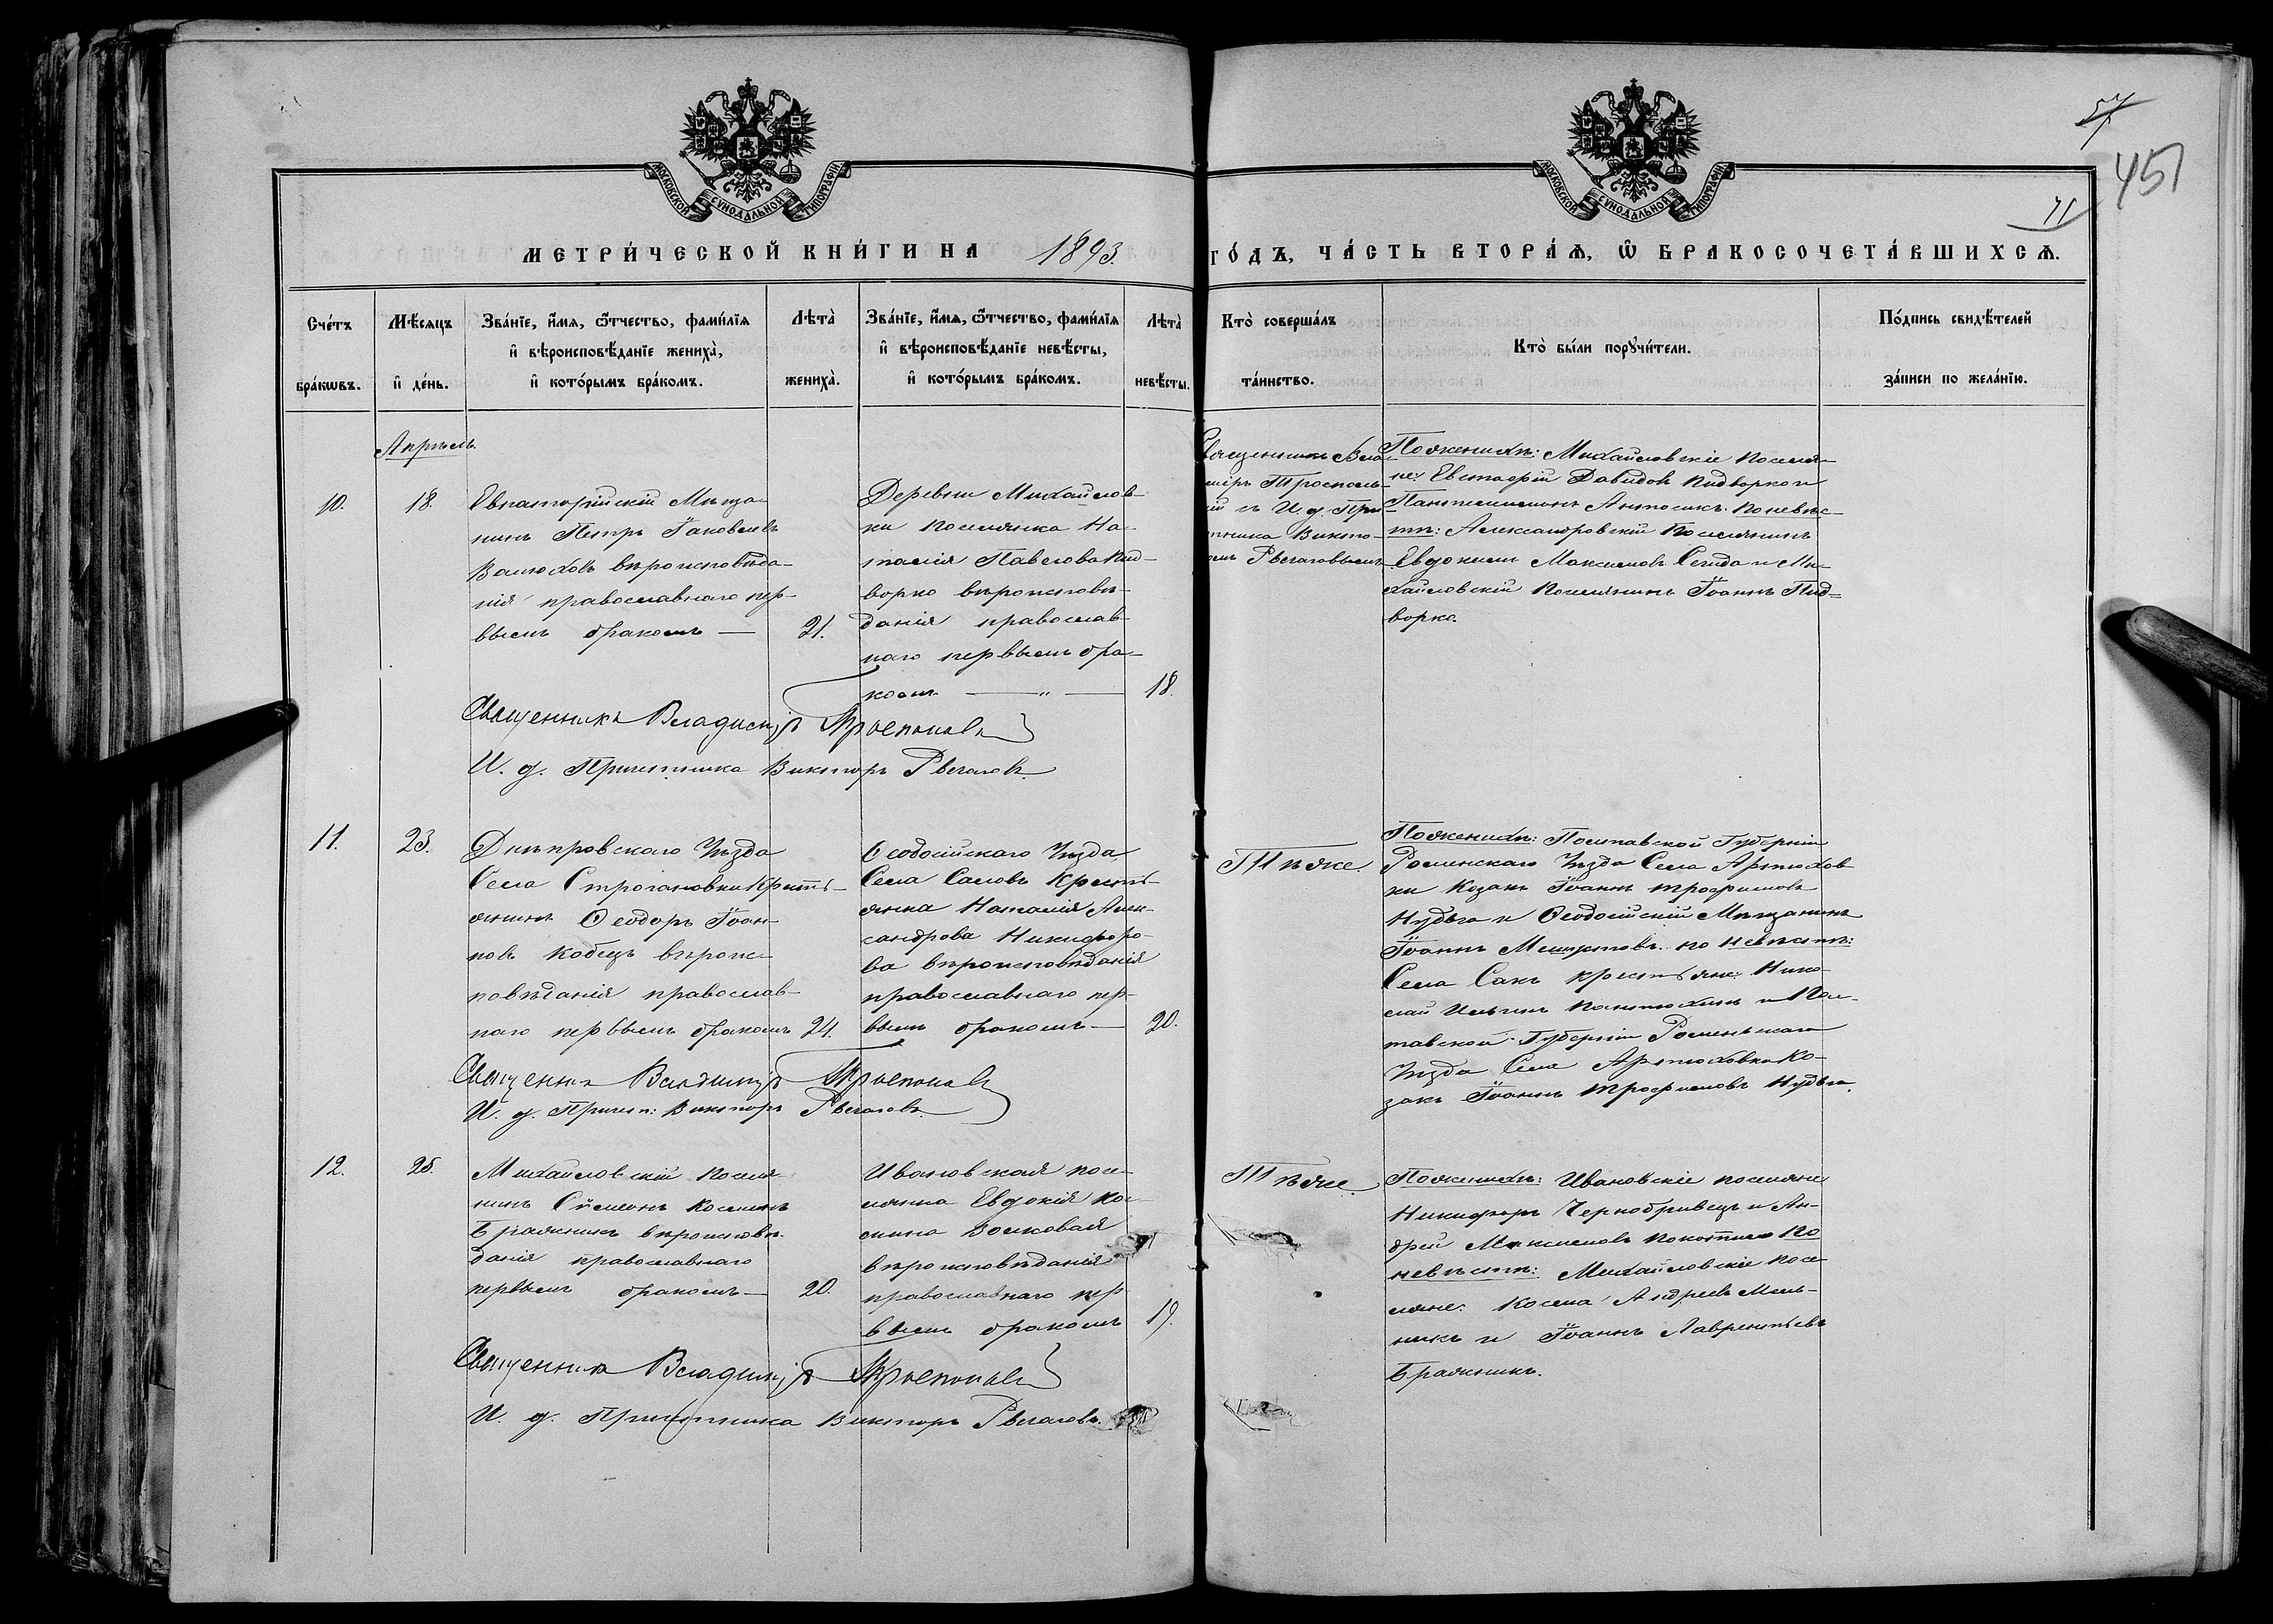 МОСКОВСКОЙ СѴНОДАЛЬНОЙ ТИПОГРАФІИ
МОСКОВСКОЙ СѴНОДАЛЬНОЙ ТИПОГРАФІИ
57
451
71
МЕТРИ́ЧЕСКОЙ КНИ́ГИ НА 1893. ГО́ДЪ, ЧА́СТЬ ВТОРА́Ѧ, Ѽ БРАКОСОЧЕТА́ВШИХСѦ.
Сче́тъ бра́кѡвъ.
Мѣ́сяцъ и҆ де́нь.
Зва́нїе, и҆́мѧ, ѻ҆́тчество, фами́лїѧ
и҆ вѣроисповѣ́данїе жениха̀,
и҆ кото́рымъ бра́комъ.
Лѣта̀ жениха̀.
Зва́нїе, и҆́мѧ, ѻ҆́тчество, фами́лїѧ
и҆ вѣроисповѣ́данїе невѣ́сты,
и҆ кото́рымъ бра́комъ.
Лѣта̀ невѣ́сты.
Кто̀ соверша́лъ
та́инство.
Кто̀ бы́ли порꙋчи́тели.
По́дпись свидѣ́телей
за́писи по жела́нїю.
Апрѣль.
10.
18.
Евпаторійскій Мѣща-
нинъ Петръ Іаковлевъ
Валюховъ вѣроисповѣда-
нія православнаго пер-
вымъ бракомъ —
21.
Деревни Михайлов-
ки поселянка На-
талія Павлова Пид-
ворко вѣроисповѣ-
данія православ-
наго первымъ бра-
комъ — " —
18.
Священникъ Вла-
міръ Троепол-
ій съ И. д. При-
тника Викто-
омъ Рвачовымъ
По женихѣ: Михайловскіе поселя-
не: Евстафій Давидовъ Пидворко и
Пантелеимонъ Антосикъ. По невѣс-
тѣ: Александровскій поселянинъ
Евдокимъ Максимовъ Сенда и Ми-
хайловскій поселянинъ Іоаннъ Пид-
ворко.
Священникъ Владиміръ
И. д. Причетника Викторъ Рвачовъ.
11.
23.
Днѣпровскаго Уѣзда
Села Строгановки Кресть-
янинъ Ѳеодоръ Іоан-
новъ Кобецъ вѣроис-
повѣданія православ-
наго первымъ бракомъ
24.
Ѳеодосійскаго Уѣзда,
Села Саловъ Кресть-
янка Наталія Алек-
сандрова Никифоро-
ва вѣроисповѣданія
православнаго пер-
вымъ бракомъ —
20.
Тѣже.
По женихѣ: Полтавской Губерніи
Роменскаго Уѣзда Села Артюхов-
ки Козакъ Іоаннъ Трофимовъ
Нудьга и Ѳеодосійскій Мѣщанинъ
Іоаннъ по невѣстѣ:
Села Сакъ крестьяне: Нико-
лай Ильинъ Пантюхинъ и Пол-
тавской Губерніи Роменьскаго
Уѣзда Села Артюховки Ко-
закъ Іоаннъ Трофимовъ Нудьга.
Священникъ Владиміръ
И. д. Причет: Викторъ Рвачовъ
12.
25.
Михайловскій поселя-
нинъ Сѵмеонъ Косминъ
Бражникъ вѣроисповѣ-
данія православнаго
первымъ бракомъ —
20.
Ивановская посе-
лянка Евдокія Ко-
смина Волковая
вѣроисповѣданія
православнаго пер-
вымъ бракомъ
19.
Тѣже.
По женихѣ: Ивановскіе поселяне
Никифоръ Чернобривецъ и Ан-
дрей Максимовъ По
невѣстѣ: Михайловскіе посе-
ляне: Косма Андреевъ Мель-
никъ и Іоаннъ Лаврентьевъ
Бражникъ.
Священникъ Владиміръ
И. д. Причетника Викторъ Рвачовъ.